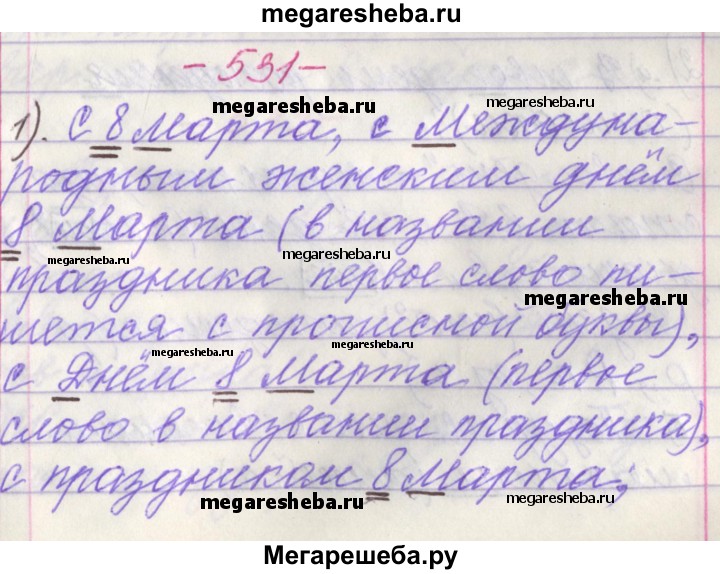 megaresheba.ru
- 531 -
megaresheba.ru
megaresheba.ru
1). С 8 Марта, с Междуна-
родным женским днём
8 Марта (в названии
megaresheba.ru
megaresheba.ru
праздника первое слово пи-
megaresheba.ru
шется с прописной буквы),
megaresheba.ru
megaresheba.ru
с Днём 8 Марта (первое
слово в названии праздника),
с праздником 8 Марта;
megaresheba.ru
megaresheba.ru
Мегарешеба.ру